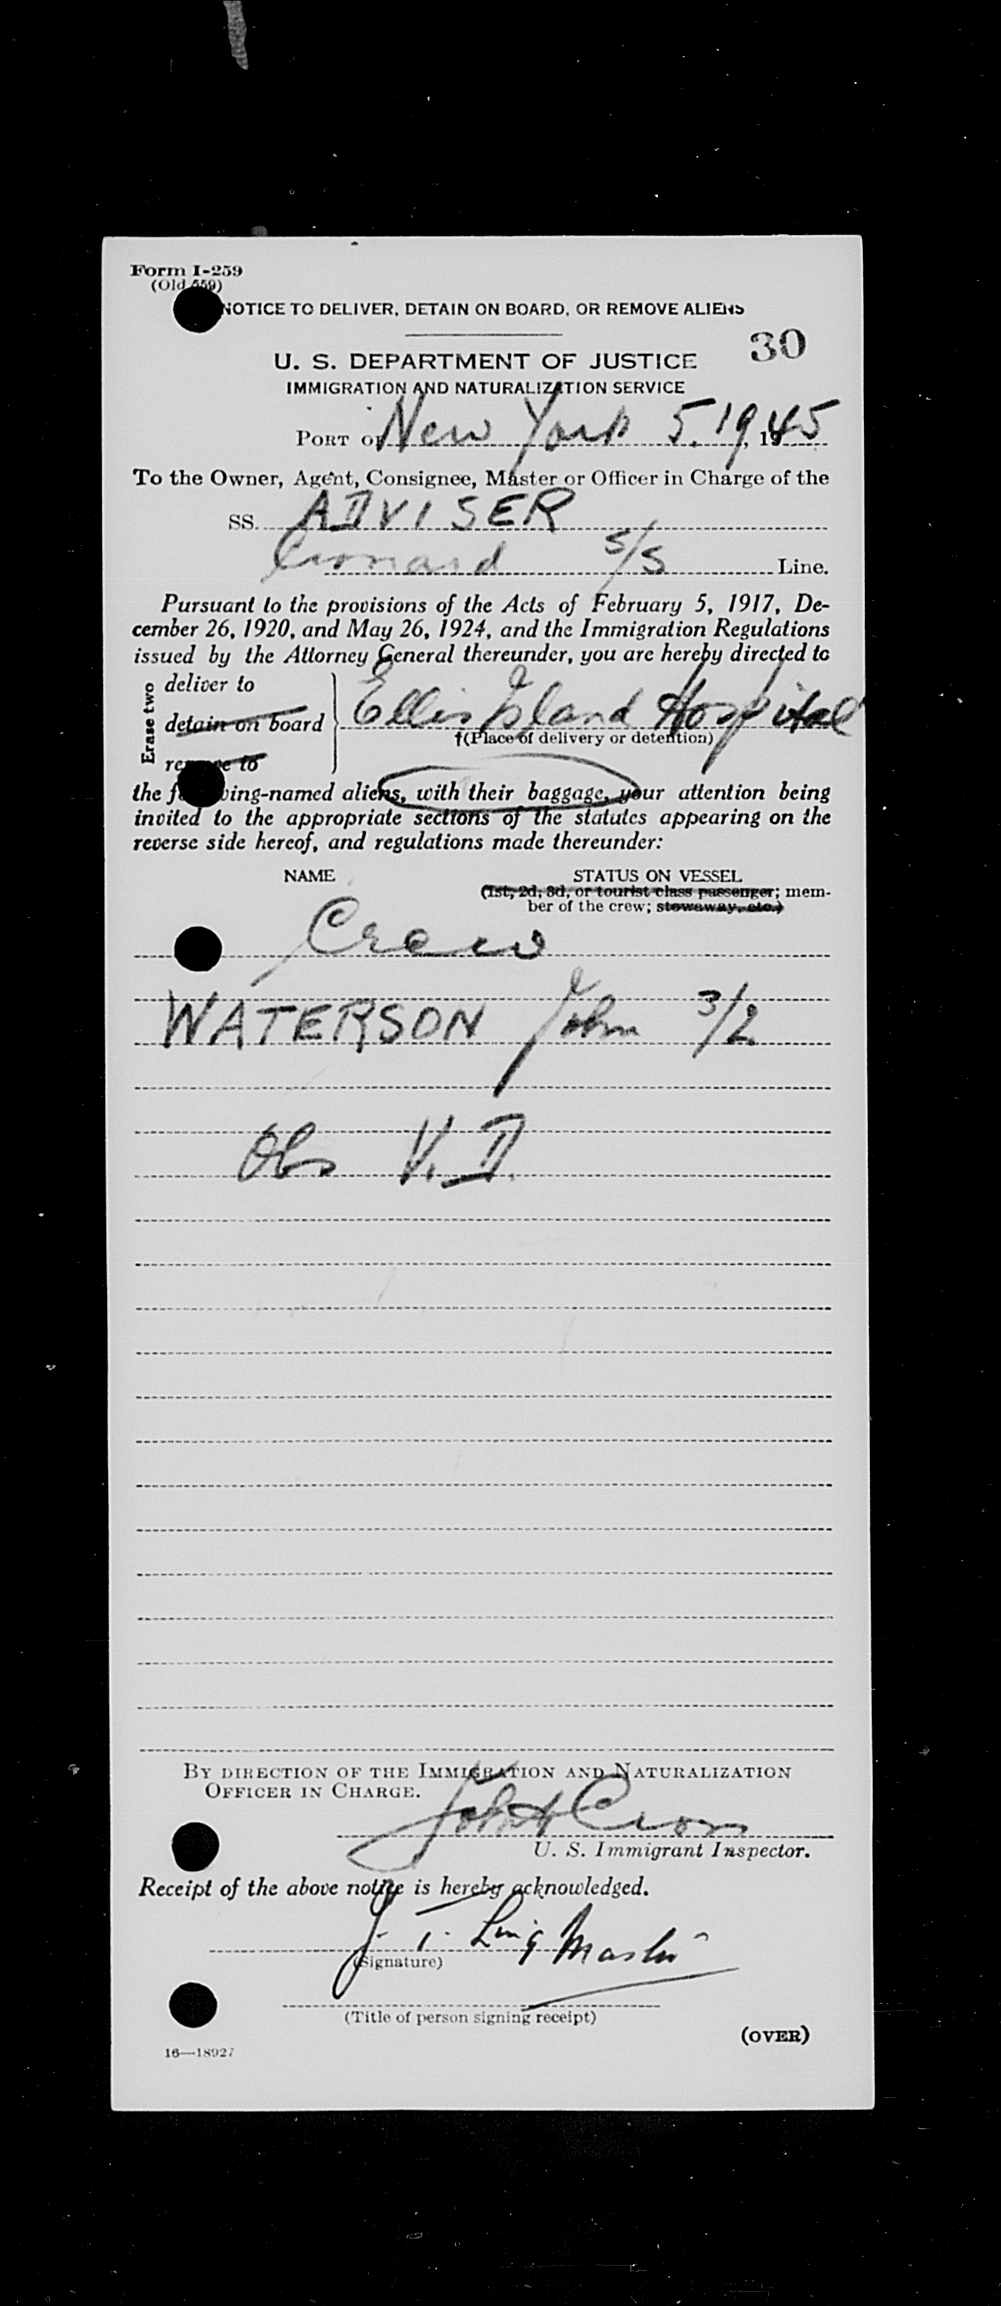 Form I-259
(Old 559)
NOTICE TO DELIVER, DETAIN ON BOARD, OR REMOVE ALIENS
30
U. S. DEPARTMENT OF JUSTICE
IMMIGRATION AND NATURALIZATION SERVICE
PORT OF New York 5.19, 1945
To the Owner, Agent, Consignee, Master or Officer in Charge of the
SS. ADVISER
S/S Line.
Pursuant to the provisions of the Acts of February 5, 1917, De-
cember 26, 1920, and May 26, 1924, and the Immigration Regulations
issued by the Attorney General thereunder, you are hereby directed to
Erase two
deliver to
detain on board
remove to
Ellis Island Hospital
†(Place of delivery or detention)
the following-named aliens, with their baggage, your attention being
invited to the appropriate sections of the statutes appearing on the
reverse side hereof, and regulations made thereunder:
NAME STATUS ON VESSEL
(1st, 2d, 3d, or tourist class passenger; mem-
ber of the crew; stowaway, etc.)
Crew
WATERSON John 3/2
Obs V.D.
BY DIRECTION OF THE IMMIGRATION AND NATURALIZATION
OFFICER IN CHARGE.
John Cron
U. S. Immigrant Inspector.
Receipt of the above notice is hereby acknowledged.
J. T. Ling Master
(Signature)
(Title of person signing receipt)
(OVER)
16—18927